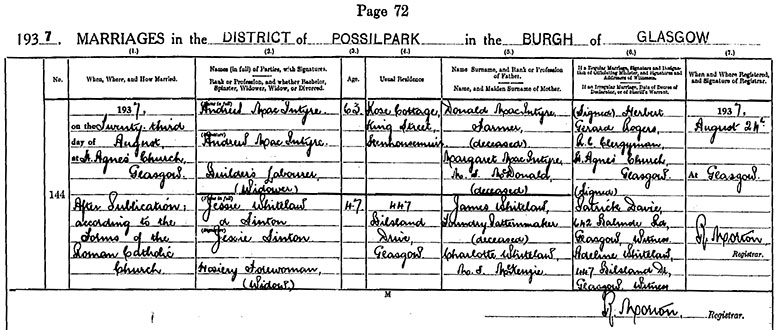 Page 72
1937. MARRIAGES in the DISTRICT of POSSILPARK in the BURGH of GLASGOW
(1.) (2.) (3.) (4.) (5.) (6.) (7.)
No.
When, Where, and How Married.
Names (in full) of Parties, with Signatures.
Rank or Profession, and whether Bachelor, Spinster, Widower, Widow, or Divorced.
Age.
Usual Residence
Name Surname, and Rank or Profession of Father.
Name, and Maiden Surname of Mother.
If a Regular Marriage, Signature and Designation of Officiating Minister, and Signatures and Addresses of Witnesses.
If an Irregular Marriage, Date of Decree of Declarator, or of Sheriff's Warrant.
When and Where Registered, and Signature of Registrar.
144
1937,
on the Twenty-third
day of August,
at St. Agnes' Church,
Glasgow.
After Publication;
according to the
Forms of the
Roman Catholic
Church.
(Name in full)
Andrew MacIntyre
(Signature)
Andrew MacIntyre
Builder's Labourer
(Widower)
(Name in full)
Jessie Whitelaw
or Sinton
(Signature)
Jessie Sinton
Hosiery Forewoman,
(Widow)
63
47
Rose Cottage,
King Street,
Stenhousemuir.
447
Bilsland
Drive,
Glasgow.
Donald MacIntyre,
Farmer,
(deceased)
Margaret MacIntyre,
M.S. McDonald,
(deceased)
James Whitelaw,
Foundry Patternmaker
(deceased)
Charlotte Whitelaw,
M.S. McKenzie.
(Signed) Herbert
Gerard Rogers,
R.C. Clergyman,
St. Agnes' Church,
Glasgow.
(Signed)
Patrick
642 Rd.,
Glasgow, Witness
Adeline Whitelaw,
447 Bilsland Dr,
Glasgow, Witness
1937,
August 24th
At Glasgow.
R. Morton
Registrar.
M
R. Morton, Registrar.